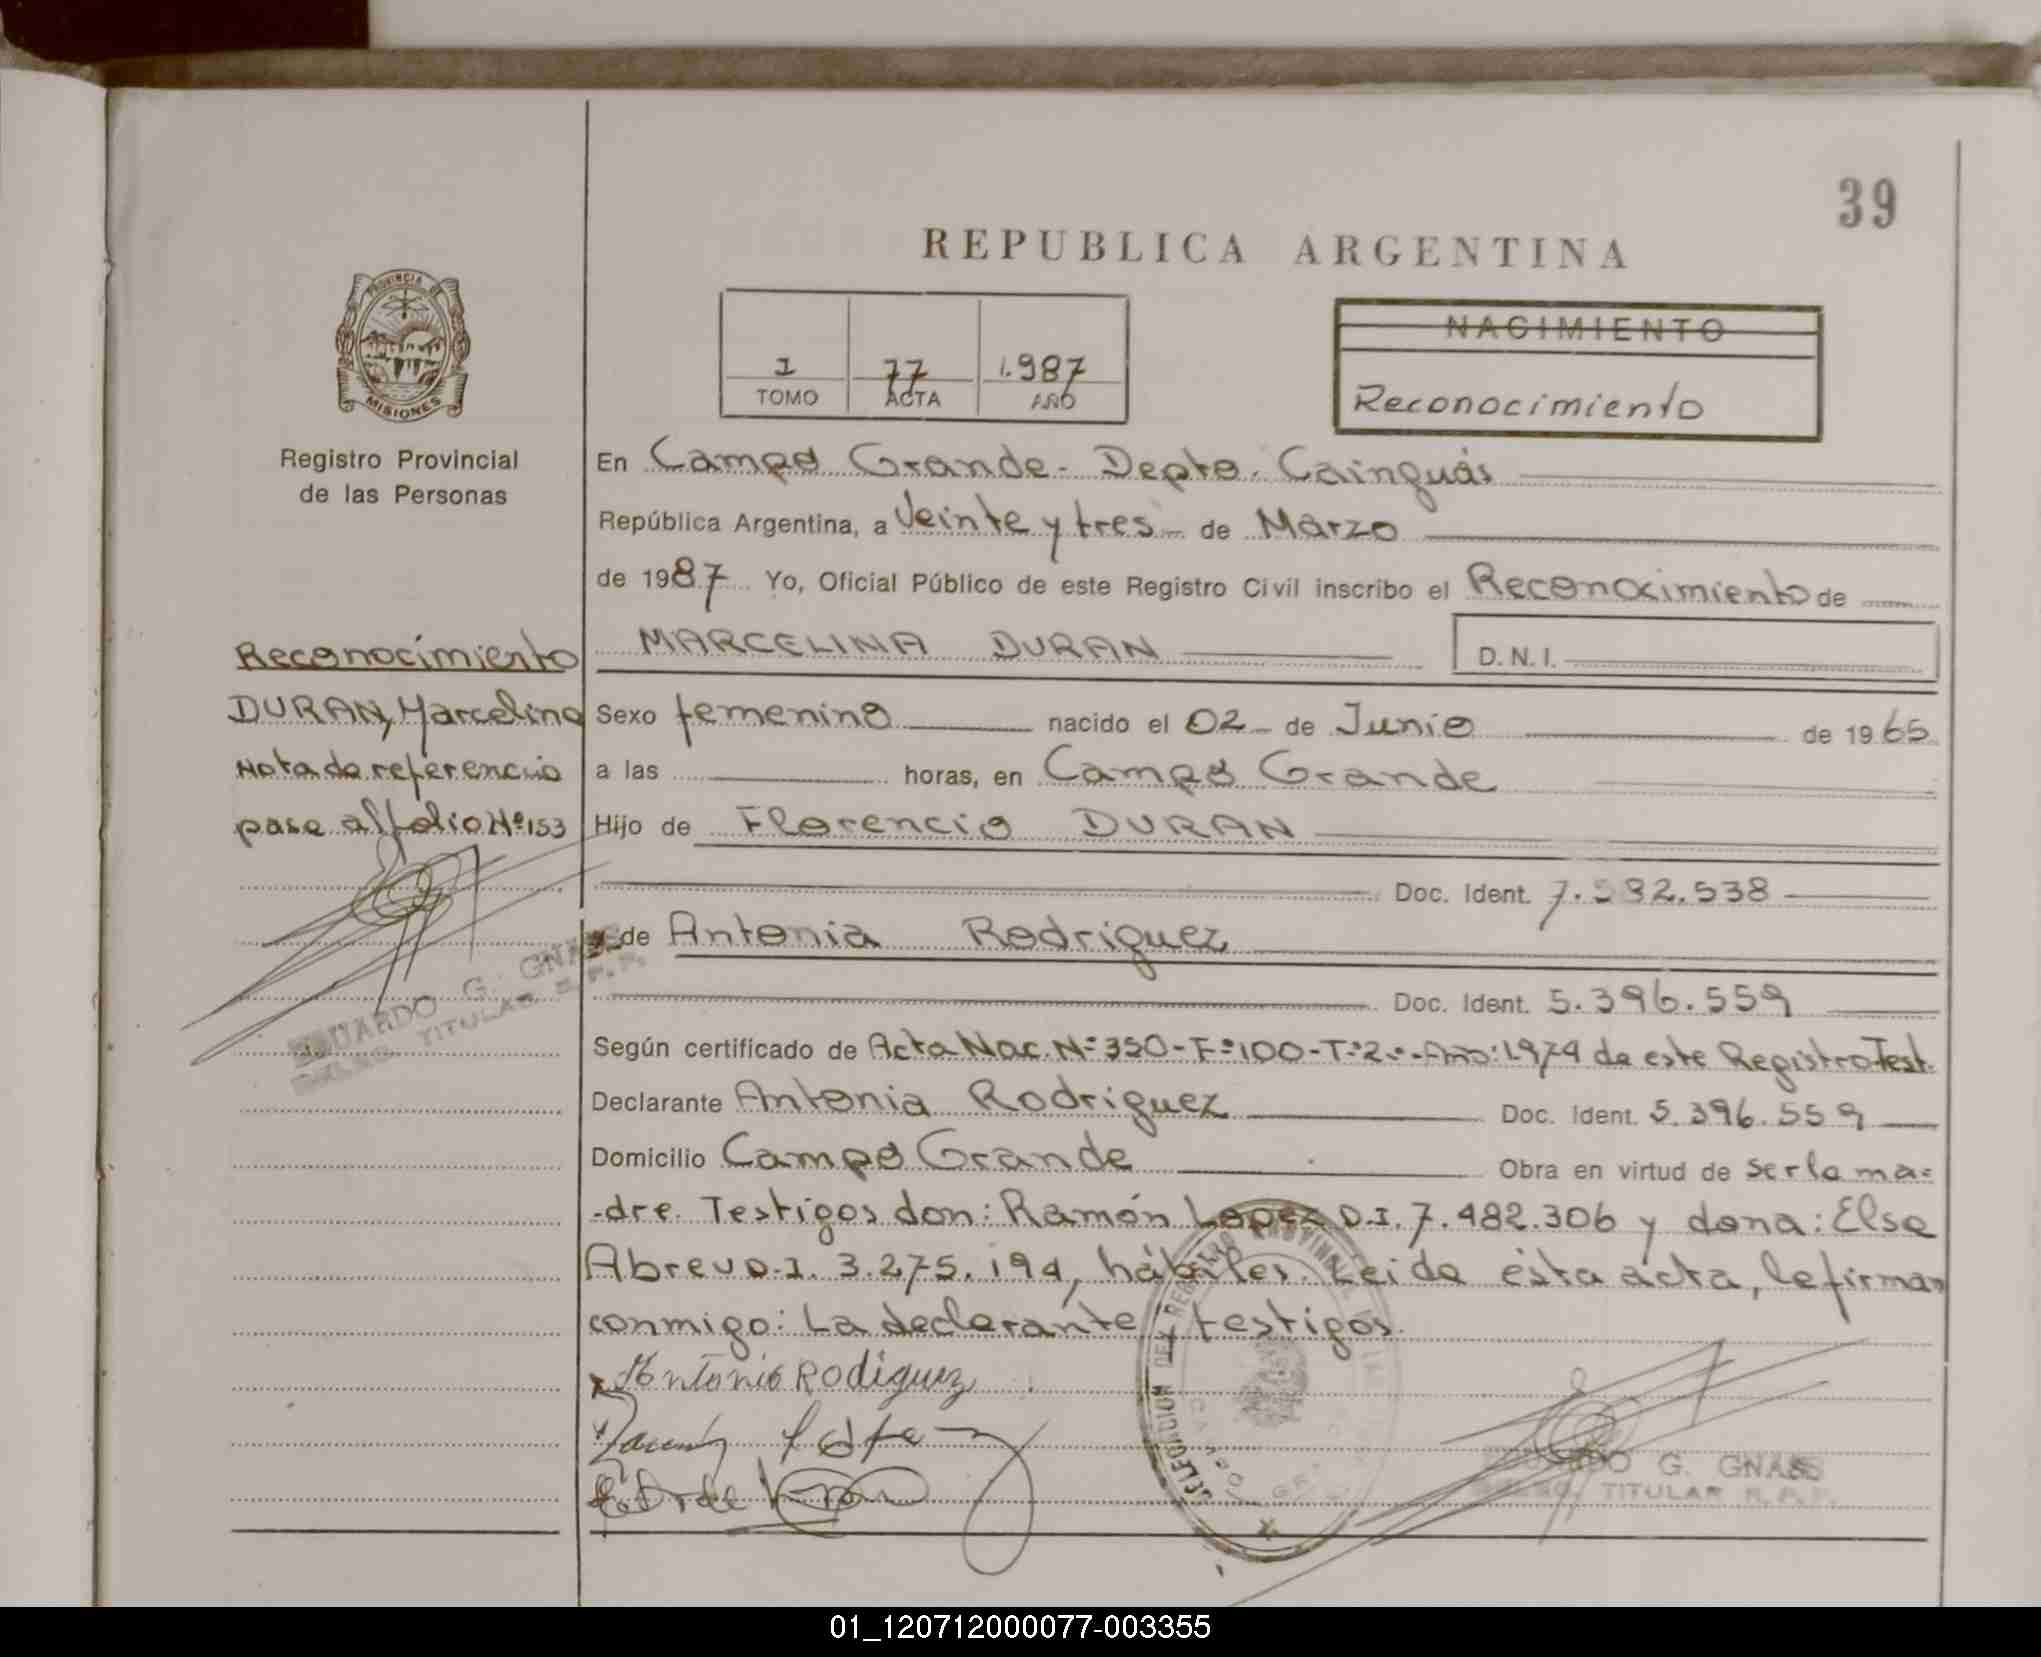 39
REPUBLICA ARGENTINA
PROVINCIA DE
MISIONES
Registro Provincial
de las Personas
1 77 1.987
TOMO ACTA AÑO
NACIMIENTO
Reconocimiento
En Campo Grande - Depto. Cainguás
República Argentina, a Veinte y tres - de Marzo
de 1987 Yo, Oficial Público de este Registro Civil inscribo el Reconocimiento de
MARCELINA DURAN D.N.I.
Sexo femenino nacido el 02 - de Junio de 1965
a las horas, en Campo Grande
Hijo de Florencio DURAN
Doc. Ident. 7.582.538
y de Antonia Rodriguez
Doc. Ident. 5.396.559
Según certificado de Acta Nac. Nº 350 - Fº 100 - T:2º - Año: 1.974 de este Registro Test.
Declarante Antonia Rodriguez Doc. Ident. 5.396.559
Domicilio Campo Grande Obra en virtud de ser la ma=
-dre. Testigos don: Ramón Lopez D.I. 7.482.306 y dona: Elsa
Abreu D.I. 3.275.194, hábiles. Leida ésta acta, la firman
conmigo: La declarante y testigos.
Antonia Rodiguez
Reconocimiento
DURAN, Marcelina
Nota de referencia
pasa al folio Nº 153
EDUARDO G. GNASS
DELEG. TITULAR R.P.P.
DELEGACION DEL REGISTRO PROVINCIAL
EDUARDO G. GNASS
DELEG. TITULAR R.P.P.
01_120712000077-003355